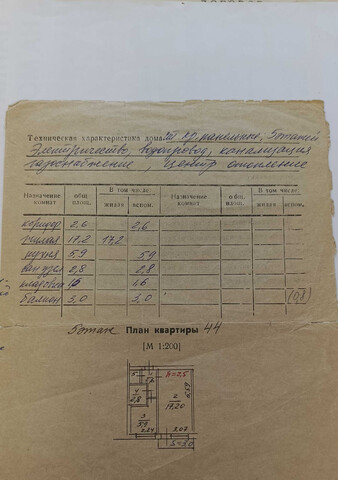 Техническая характеристика дома: III гр. панельный, 5 этажей
Электричество, водопровод, канализация
газоснабжение, центр. отопление
Назначение комнат общ. площ. В том числе: жилая вспом. Назначение комнат общ. площ. В том числе: жилая вспом.
коридор 2,6 2,6
жилая 17,2 17,2
кухня 5,9 5,9
сан узел 2,8 2,8
кладовка
балкон 3,0 3,0 (0,8)
5 этаж План квартиры 44
[М 1:200]
h=2,5
2
17,20
5,59
4
2,8
3
5,9
2,24
3,07
S=3,0